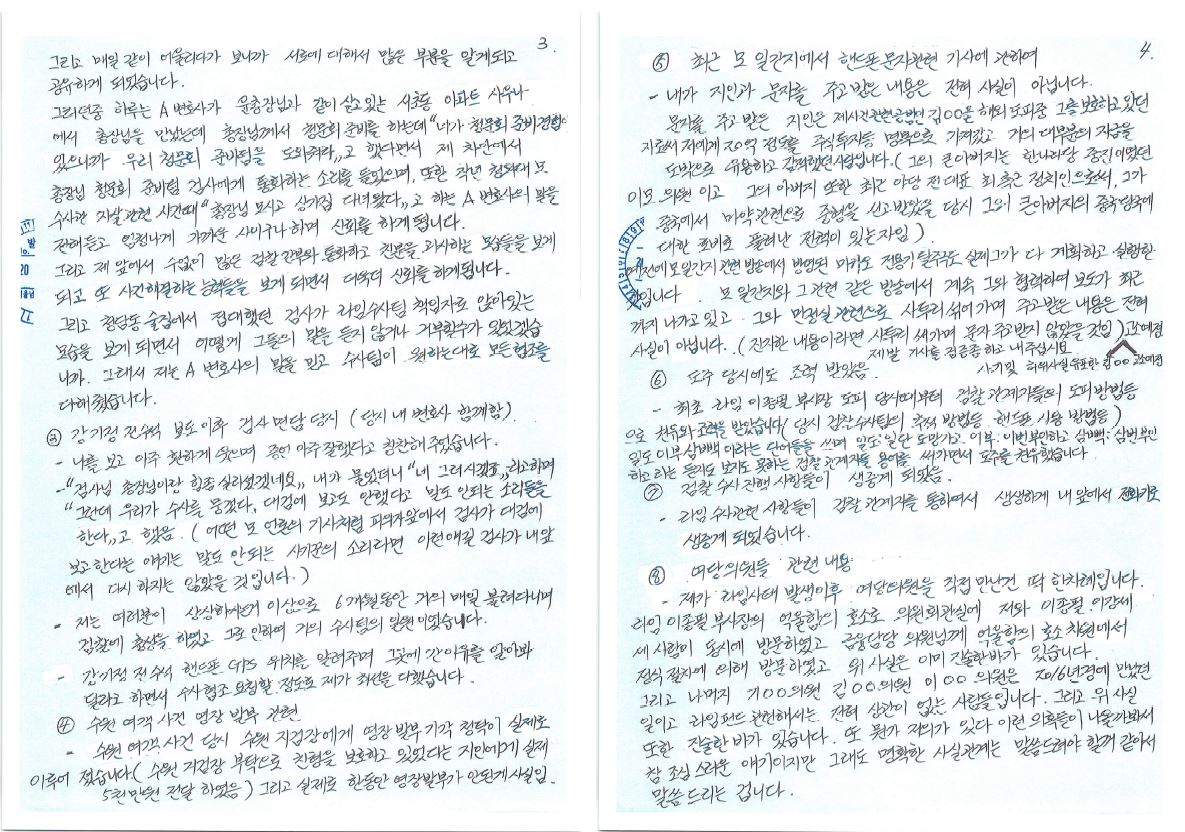 3.
그리고 매일 같이 어울리다가 보니까 서로에 대해서 많은 부분을 알게되고
공유하게 되었습니다.
그러던중 하루는 A 변호사가 윤총장님과 같이 살고 있는 서초동 아파트 사우나
에서 총장님을 만났는데 총장님께서 청문회 준비를 하는데 "너가 청문회 준비경험이
있으니까 우리 청문회 준비팀을 도와줘라,, 고 했다면서 제 차안에서
총장님 청문회 준비팀 검사에게 통화하는 소리를 들었으며, 또한 작년 청와대 모
수사관 자살관련 사건때 "총장님 모시고 상가집 다녀왔다,, 고 하는 A 변호사의 말을
전해듣고 엄청나게 가까운 사이구나하며 신뢰를 하게 됩니다.
그리고 제 앞에서 수없이 많은 검찰 간부와 통화하고 친분을 과시하는 모습들을 보게
되고 또 사건해결하는 능력들을 보게 되면서 더욱더 신뢰를 하게됩니다.
그리고 청담동 술집에서 접대했던 검사가 라임수사팀 책임자로 앉아있는
모습을 보게 되면서 어떻게 그들의 말을 듣지 않거나 거부할수가 있었겠습
니까. 그래서 저는 A 변호사의 말을 믿고 수사팀이 원하는대로 모든협조를
다해줬습니다.
③ 강기정 전수석 보도이후 검사 면담 당시 (당시 내 변호사 함께함)
- 나를 보고 아주 환하게 웃으며 증언 아주잘했다고 칭찬해주었습니다.
- "검사님 총장님이랑 힘좀 실리겠네요,, 내가 물었더니 "네 그러시겠죠,, 라고하며
"그런데 우리가 수사를 뭉겼다, 대검에 보고도 안했다고 말도 안되는 소리들을
한다,, 고 했음. (어떤 모 언론의 기사처럼 피의자앞에서 검사가 대검에
보고한다는 얘기는 말도 안되는 사기꾼의 소리라면 이런얘길 검사가 내앞
에서 다시 하지는 않았을 것입니다.)
- 저는 여러분이 상상하시는거 이상으로 6개월동안 거의 매일 불려다니며
검찰에 충성을 하였고 그로 인하여 거의 수사팀의 일원이었습니다.
- 강기정 전수석 핸드폰 GPS 위치를 알려주며 그곳에 간 이유를 알아봐
달라고 하면서 수사협조 요청할 정도로 제가 최선을 다했습니다.
④ 수원 여객 사건 영장 발부 관련
- 수원 여객 사건 당시 수원 지검장에게 영장 발부 기각 청탁이 실제로
이루어 졌습니다 (수원 지검장 부탁으로 친형을 보호하고 있었다는 지인에게 실제
5천만원 전달 하였음) 그리고 실제로 한동안 영장발부가 안된게 사실임.
4.
⑤ 최근 모 일간지에서 핸드폰 문자관련 기사에 관하여
- 내가 지인과 문자를 주고 받은 내용은 전혀 사실이 아닙니다.
문자를 주고 받은 지인은 제사건관련공범인 김○○을 해외 도피중 그를보호하고있던
자로써 저에게 20억 정도를 주식투자등 명목으로 가져갔고 거의 대부분의 자금을
도박으로 유용하고 잠적했던사람입니다. (그의 큰아버지는 한나라당 중진이었던
이모 의원 이고 그의 아버지 또한 최근 야당 전대표 최측근 정치인으로써, 그가
중국에서 마약관련으로 중형을 선고받았을 당시 그의 큰아버지의 중국당국에
대한 로비로 풀려난 전력이 있는자임)
예전에 모일간지 관련 방송에서 방영된 마카오 전용기 탈주극도 실제 그가 다 계획하고 실행한
자입니다. 모 일간지와 그관련 같은 방송에서 계속 그와 협력하여 보도가 최근
까지 나가고 있고 그와 민정실 관련으로 사투리 섞어가며 주고받은 내용은 전혀
사실이 아닙니다. (진지한 내용이라면 사투리 써가며 문자 주고받지 않았을 것임) 고소예정
제발 기사를 검증좀 하고 내주십시요
사기및 허위사실 유포한 김○○ 고소예정
⑥ 도주 당시에도 조력 받았음.
- 최초 라임 이종필 부사장 도피 당시때부터 검찰 관계자들의 도피방법등
으로 권유와 조력을 받았습니다 (당시 검찰수사팀의 추적 방법등, 핸드폰 사용 방법등)
일도 이부 삼빽 이라는 단어들을 쓰며 일도: 일단 도망가고, 이부: 이번부인하고 삼빽: 삼번부인
하고 라는 듣지도 보지도 못하는 검찰 관계자들 용어를 써가면서 도주를 권유했습니다
⑦ 검찰 수사 진행 사항들이 생중계 되었음.
- 라임 수사관련 사항들이 검찰 관계자를 통하여서 생생하게 내 앞에서 전화기로
생중계 되었습니다.
⑧ 여당의원들 관련 내용
- 제가 라임사태 발생이후 여당의원을 직접 만난건 딱 한차례입니다.
라임 이종필 부사장의 억울함의 호소로 의원회관실에 저와 이종필, 이강세
세 사람이 동시에 방문하였고 금융담당 의원님께 억울함의 호소 차원에서
정식 절차에 의해 방문하였고 위 사실은 이미 진술한바가 있습니다.
그리고 나머지 기○○의원 김○○의원 이○○ 의원은 2016년경에 만났던
일이고 라임펀드 관련해서는 전혀 상관이 없는 사람들입니다. 그리고 위 사실
또한 진술한 바가 있습니다. 또 뭔가 저의가 있다 이런 의혹들이 나올까봐서
참 조심스러운 얘기이지만 그래도 명확한 사실관계는 말씀드려야 할꺼 같아서
말씀 드리는 겁니다.